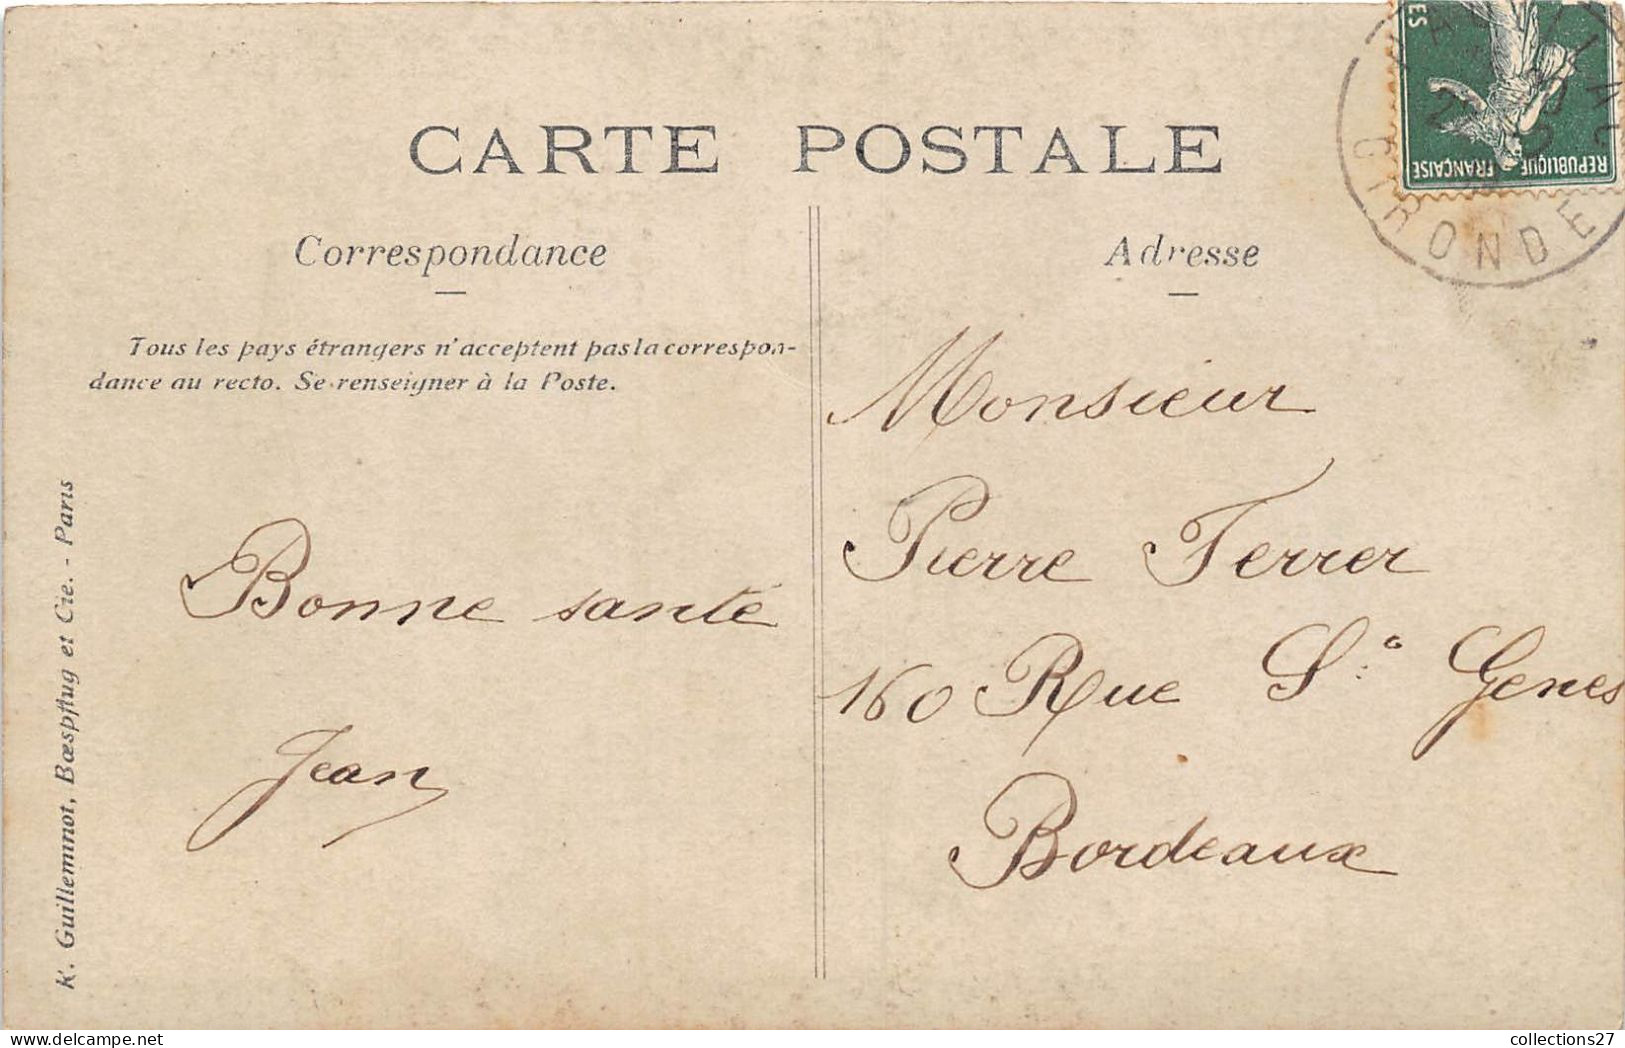 CARTE POSTALE
Correspondance
Tous les pays étrangers n'acceptent pas la correspon-
dance au recto. Se renseigner à la Poste.
Bonne santé
Jean
K. Guilleminot, Bœspflug et Cie. - Paris
Adresse
Monsieur
Pierre Ferrer
160 Rue St Genes
Bordeaux
REPUBLIQUE FRANÇAISE
GIRONDE
collections27